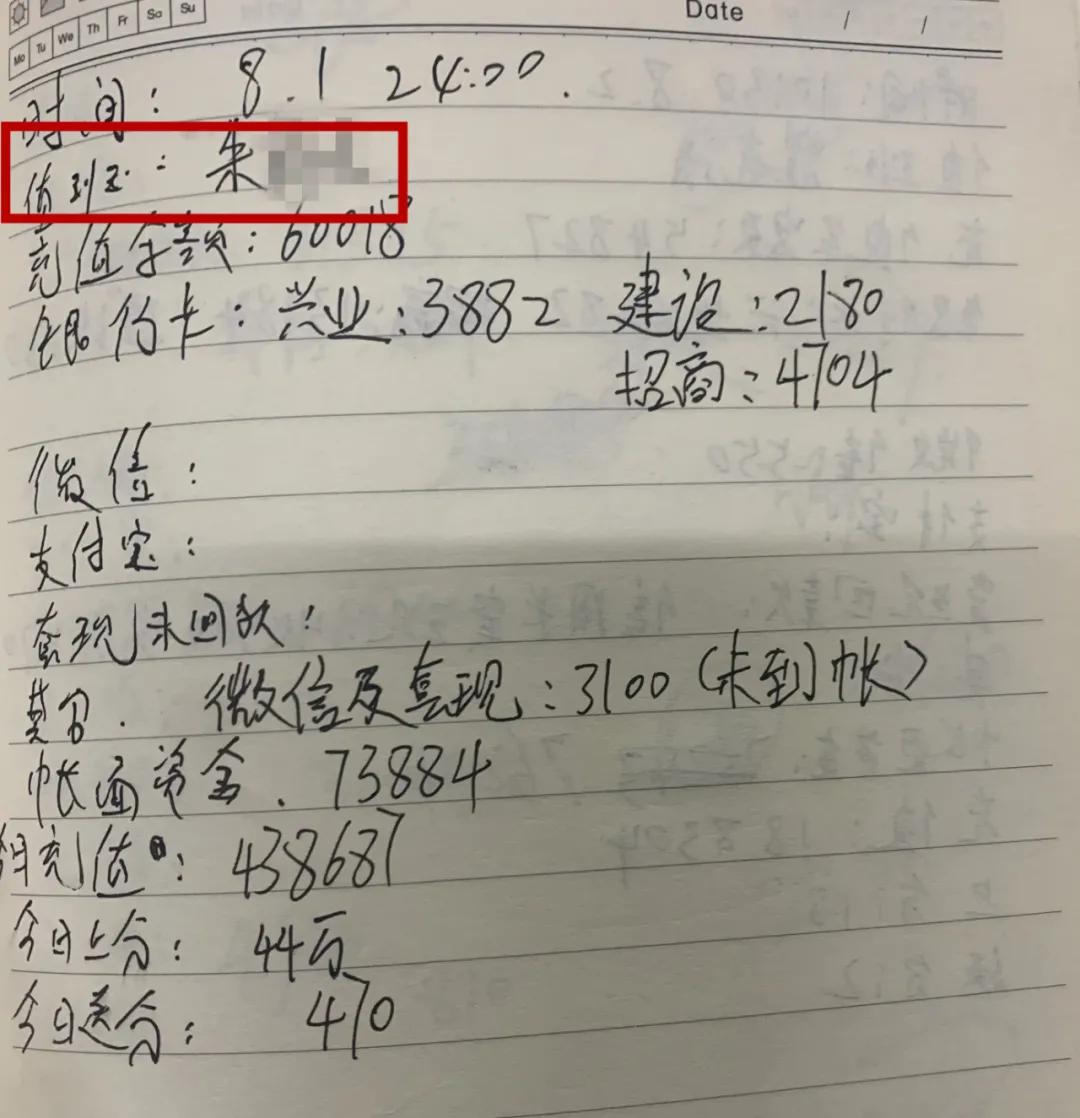 Date / /
Mo Tu We Th Fr Sa Su
时间: 8.1 24:00.
值班: 朱
充值余额: 60018
银行卡: 兴业: 3882 建设: 2180
招商: 4704
微信:
支付宝:
套现未回款:
其它. 微信及套现: 3100 (未到帐)
帐面资金. 73884
充值: 438687
今日上分: 44万
今日送分: 470